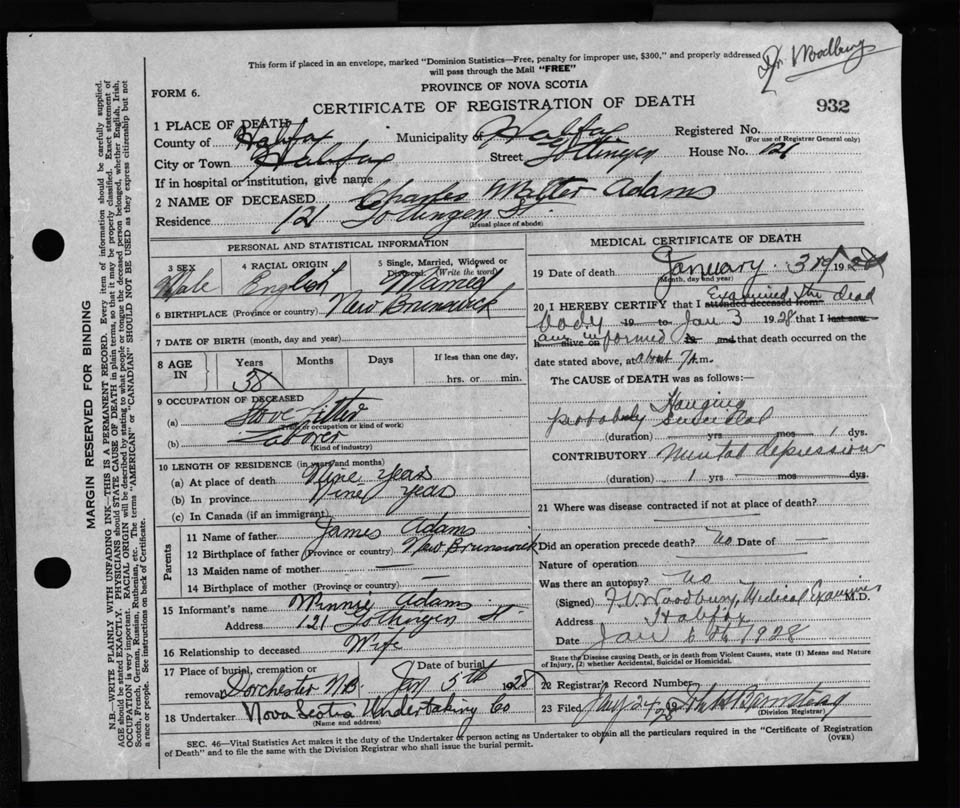 Dr. Woodbury
This form if placed in an envelope, marked "Dominion Statistics—Free, penalty for improper use, $300," and properly addressed
will pass through the Mail "FREE"
PROVINCE OF NOVA SCOTIA
FORM 6.
CERTIFICATE OF REGISTRATION OF DEATH
932
1 PLACE OF DEATH
County of Halifax Municipality of Halifax Registered No.
(For use of Registrar General only)
City or Town Halifax Street Gottingen House No. 121
If in hospital or institution, give name
2 NAME OF DECEASED Charles Walter Adams
Residence 121 Gottingen St
(Usual place of abode)
PERSONAL AND STATISTICAL INFORMATION
3 SEX 4 RACIAL ORIGIN 5 Single, Married, Widowed or
Divorced (Write the word)
Male English Married
6 BIRTHPLACE (Province or country) New Brunswick
7 DATE OF BIRTH (month, day and year)
8 AGE IN Years Months Days If less than one day,
38 hrs. or min.
9 OCCUPATION OF DECEASED
(a) Stove Fitter
(Trade or occupation or kind of work)
(b) Laborer
(Kind of industry)
10 LENGTH OF RESIDENCE (in years and months)
(a) At place of death Nine years
(b) In province Nine years
(c) In Canada (if an immigrant)
Parents
11 Name of father James Adams
12 Birthplace of father (Province or country) New Brunswick
13 Maiden name of mother —
14 Birthplace of mother (Province or country) —
15 Informant's name Minnie Adams
Address 121 Gottingen St
16 Relationship to deceased Wife
17 Place of burial, cremation or Date of burial
removal Dorchester N.B. Jan 5th 1928
18 Undertaker Nova Scotia Undertaking Co
(Name and address)
MEDICAL CERTIFICATE OF DEATH
19 Date of death January 3rd 1928
(Month, day and year)
20 I HEREBY CERTIFY that I attended deceased from Examined the dead
body 19 to Jan 3 1928 that I last saw
h alive on am informed 19 and that death occurred on the
date stated above, at about 7 A.m.
The CAUSE OF DEATH was as follows:—
Hanging
probably suicidal
(duration) yrs mos 1 dys.
CONTRIBUTORY Mental depression
(duration) 1 yrs mos dys.
21 Where was disease contracted if not at place of death?
Did an operation precede death? No Date of —
Nature of operation
Was there an autopsy? No
(Signed) Woodbury, Medical Examiner M.D.
Address Halifax
Date Jan 6th 1928
State the Disease causing Death, or in death from Violent Causes, state (1) Means and Nature
of Injury, (2) whether Accidental, Suicidal or Homicidal.
22 Registrar's Record Number
23 Filed
(Division Registrar)
SEC. 46—Vital Statistics Act makes it the duty of the Undertaker or person acting as Undertaker to obtain all the particulars required in the "Certificate of Registration
of Death" and to file the same with the Division Registrar who shall issue the burial permit.
(OVER)
MARGIN RESERVED FOR BINDING
N.B.—WRITE PLAINLY WITH UNFADING INK—THIS IS A PERMANENT RECORD. Every item of information should be carefully supplied.
AGE should be stated EXACTLY. PHYSICIANS should STATE CAUSE OF DEATH in plain terms, so that it may be properly classified. Exact statement of
OCCUPATION is very important. RACIAL ORIGIN will be described by stating to what people or tongue the deceased person belonged, whether English, Irish,
Scotch, French, German, Russian, Ruthenian, etc. The terms "AMERICAN" or "CANADIAN" SHOULD NOT BE USED as they express citizenship but not
a race or people. See instructions on back of Certificate.